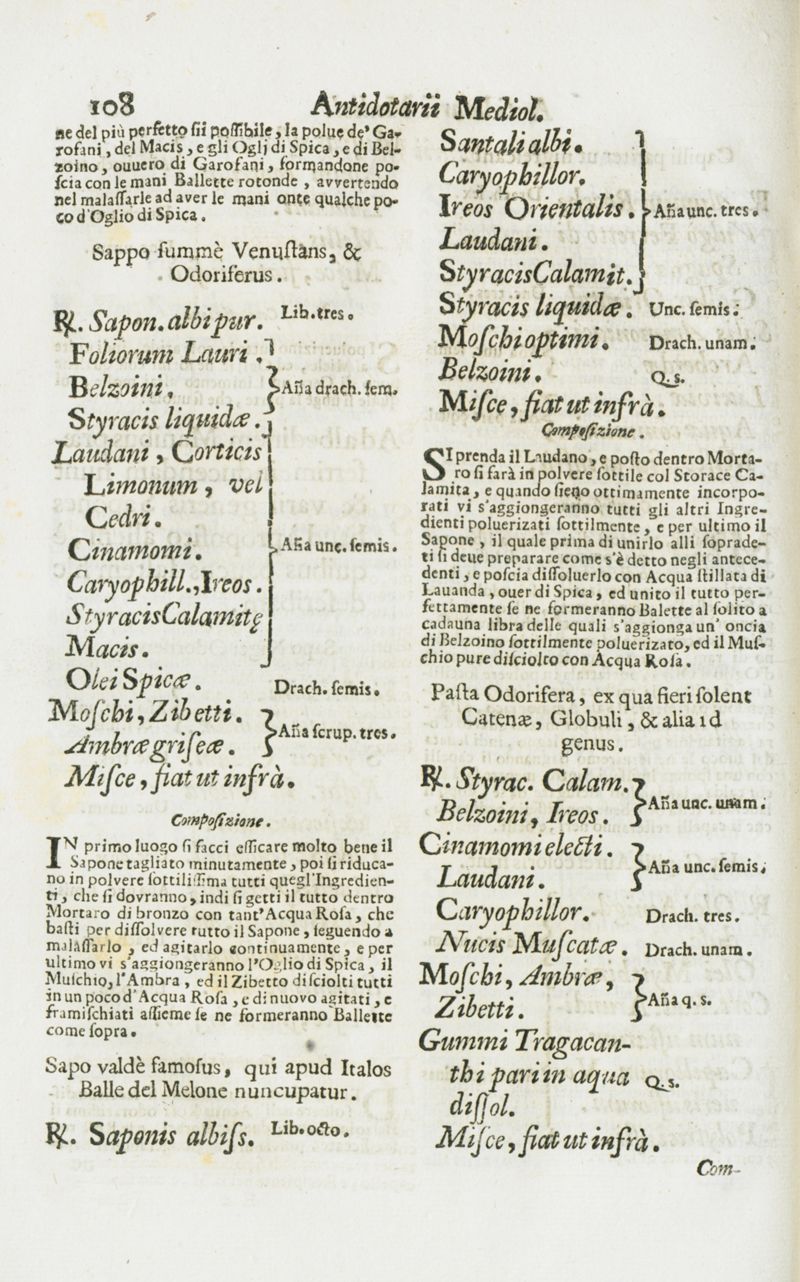 108 Antidotarii Mediol.
ne del più perfetto ſii poſſibile, la polue de' Ga-
rofani, del Macis, e gli Oglj di Spica, e di Bel-
zoino, ouuero di Garofani, formandone po-
ſcia con le mani Ballette rotonde, avvertendo
nel malaſſarle ad aver le mani onte qualche po-
co d'Oglio di Spica.
Sappo ſummè Venuſtans, &
Odoriferus.
℞. Sapon. albi pur. Lib. tres.
Foliorum Lauri.
Belzoini, Aña drach. ſem.
Styracis liquidæ.
Laudani, Corticis
Limonum, vel
Cedri.
Cinamomi. Aña unc. ſemis.
Caryophill., Ireos.
Styracis Calamitę
Macis.
Olei Spicæ. Drach. ſemis.
Moſchi, Zibetti.
Ambræ griſeæ. Aña ſcrup. tres.
Miſce, fiat ut infrà.
Compoſizione.
IN primo luogo ſi facci eſſicare molto bene il
Sapone tagliato minutamente, poi ſi riduca-
no in polvere ſottiliſſima tutti quegl'Ingredien-
ti, che ſi dovranno, indi ſi getti il tutto dentro
Mortaro di bronzo con tant'Acqua Roſa, che
baſti per diſſolvere tutto il Sapone, ſeguendo a
malaſſarlo, ed agitarlo continuamente, e per
ultimo vi s'aggiongeranno l'Oglio di Spica, il
Muſchio, l'Ambra, ed il Zibetto diſciolti tutti
in un poco d'Acqua Roſa, e di nuovo agitati, e
framiſchiati aſſieme ſe ne formeranno Ballette
come ſopra.
Sapo valdè famoſus, qui apud Italos
Balle del Melone nuncupatur.
℞. Saponis albiſs. Lib. octo.
Santali albi.
Caryophillor.
Ireos Orientalis. Aña unc. tres.
Laudani.
Styracis Calamit.
Styracis liquidæ. Unc. ſemis.
Moſchi optimi. Drach. unam.
Belzoini. Q. s.
Miſce, fiat ut infrà.
Compoſizione.
SI prenda il Laudano, e poſto dentro Morta-
ro ſi farà in polvere ſottile col Storace Ca-
lamita, e quando ſieno ottimamente incorpo-
rati vi s'aggiongeranno tutti gli altri Ingre-
dienti poluerizati ſottilmente, e per ultimo il
Sapone, il quale prima di unirlo alli ſoprade-
ti ſi deue preparare come s'è detto negli antece-
denti, e poſcia diſſoluerlo con Acqua ſtillata di
Lauanda, ouer di Spica, ed unito il tutto per-
fettamente ſe ne formeranno Balette al ſolito a
cadauna libra delle quali s'aggionga un' oncia
di Belzoino ſottilmente poluerizato, ed il Muſ-
chio pure diſciolto con Acqua Roſa.
Paſta Odorifera, ex qua fieri ſolent
Catenæ, Globuli, & alia id
genus.
℞. Styrac. Calam.
Belzoini, Ireos. Aña unc. unam.
Cinamomi electi.
Laudani. Aña unc. ſemis.
Caryophillor. Drach. tres.
Nucis Muſcatæ. Drach. unam.
Moſchi, Ambræ,
Zibetti. Aña q. s.
Gummi Tragacan-
thi pari in aqua Q. s.
diſſol.
Miſce, fiat ut infrà.
Com-